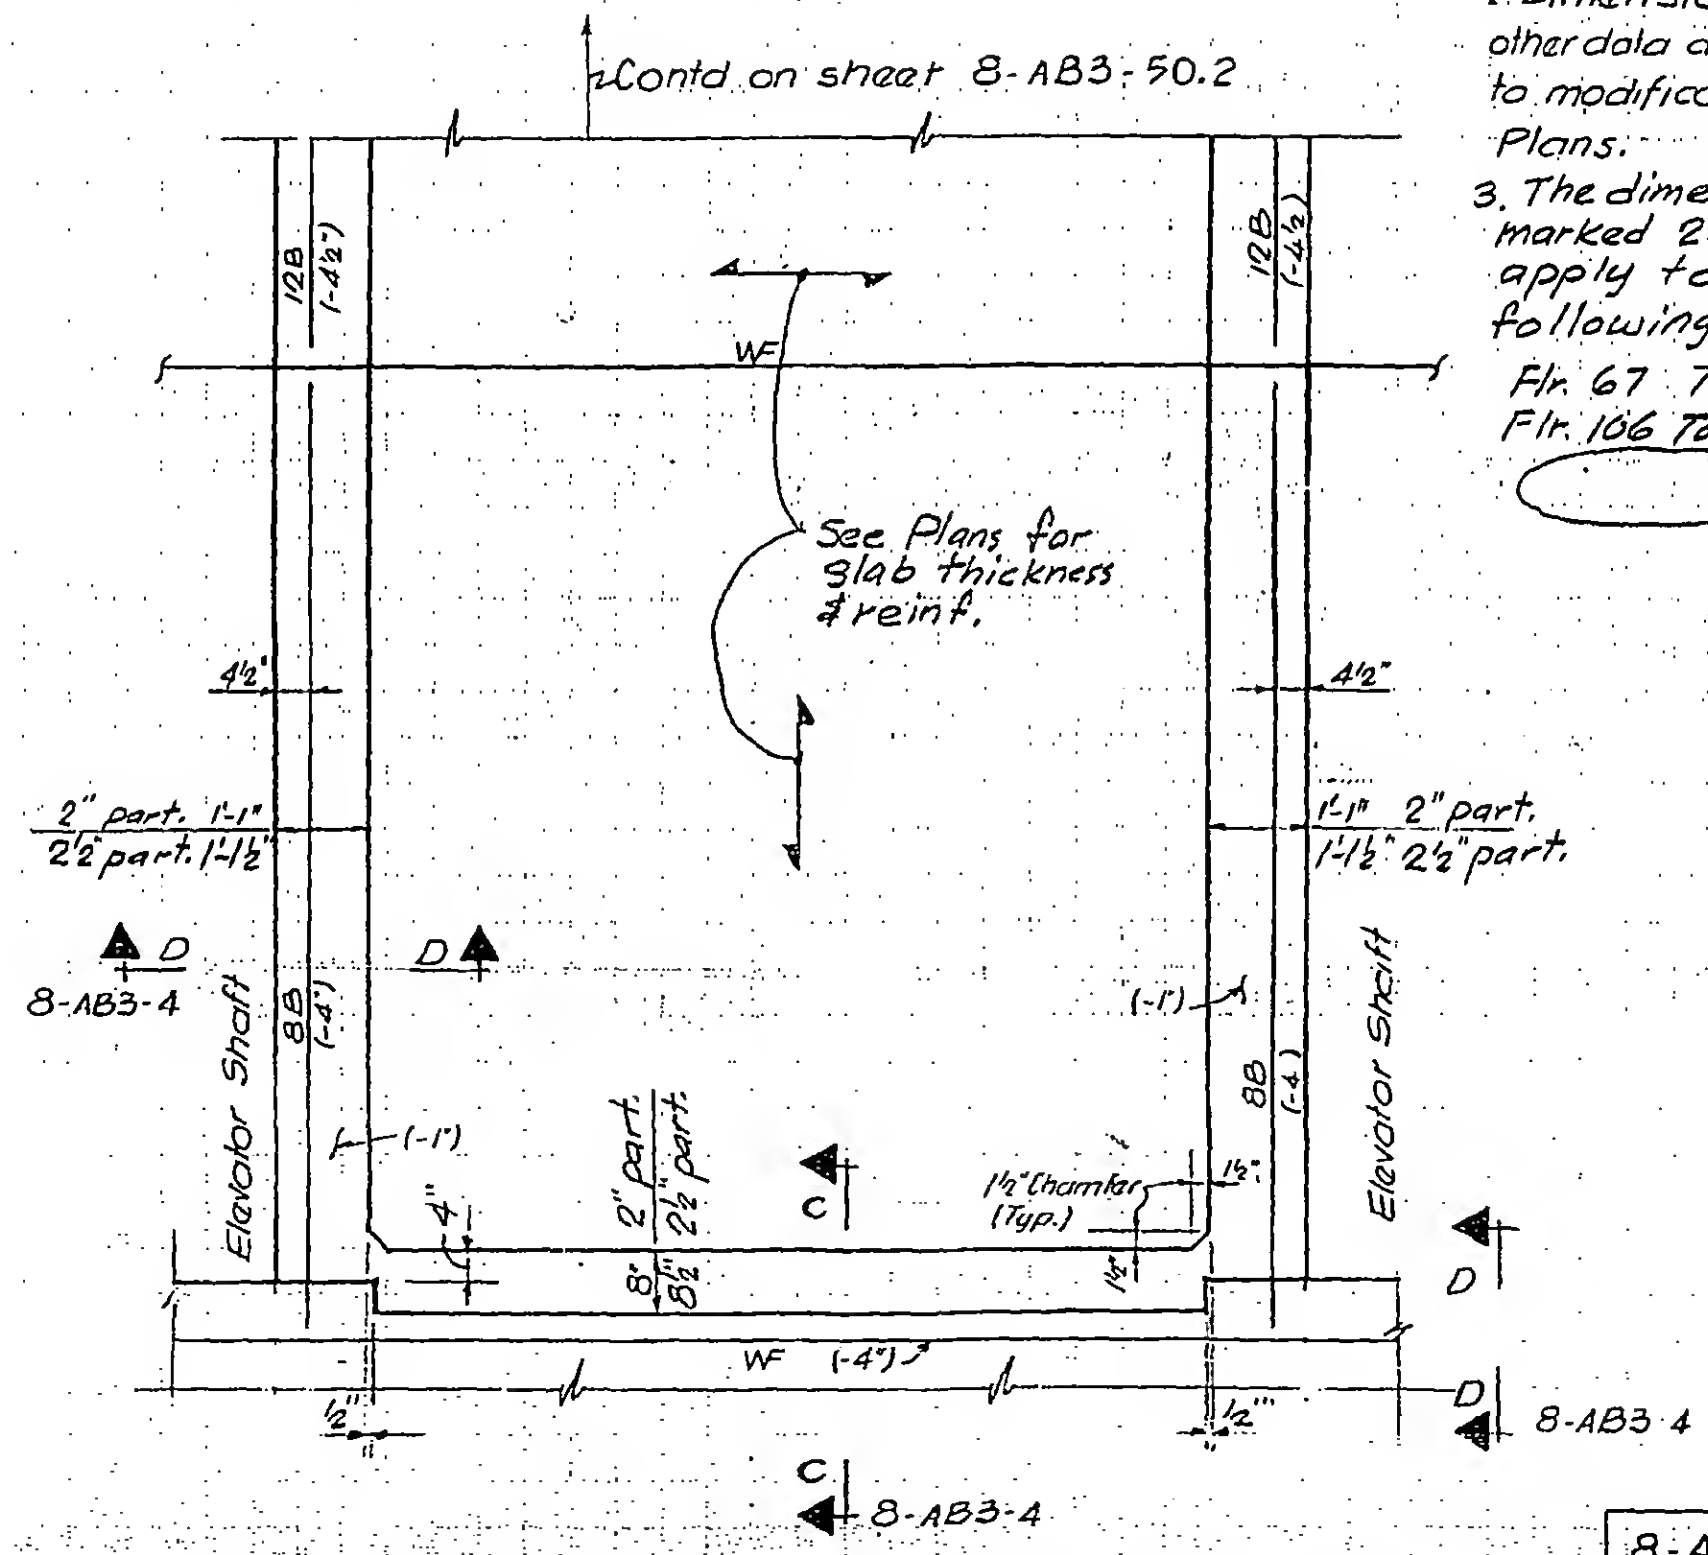 Contd on sheet 8-AB3-50.2
other data
to modifica
Plans.
3. The dime
marked 2
apply to
following
Flr. 67
Flr. 106 To
12B
(-4½")
12B
(-4½)
WF
See Plans for
slab thickness
& reinf.
4½"
4½"
2" part. 1'-1"
2½" part. 1'-1½"
1'-1" 2" part.
1'-1½" 2½" part.
D
D
8-AB3-4
Elevator Shaft
8B
(-4")
(-1")
(-1")
8B
(-4)
Elevator Shaft
4"
2" part.
2½" part.
8"
8½"
C
1½" Chamfer
(Typ.)
1½"
1½"
D
WF (-4")
½"
½"
D
8-AB3-4
C
8-AB3-4